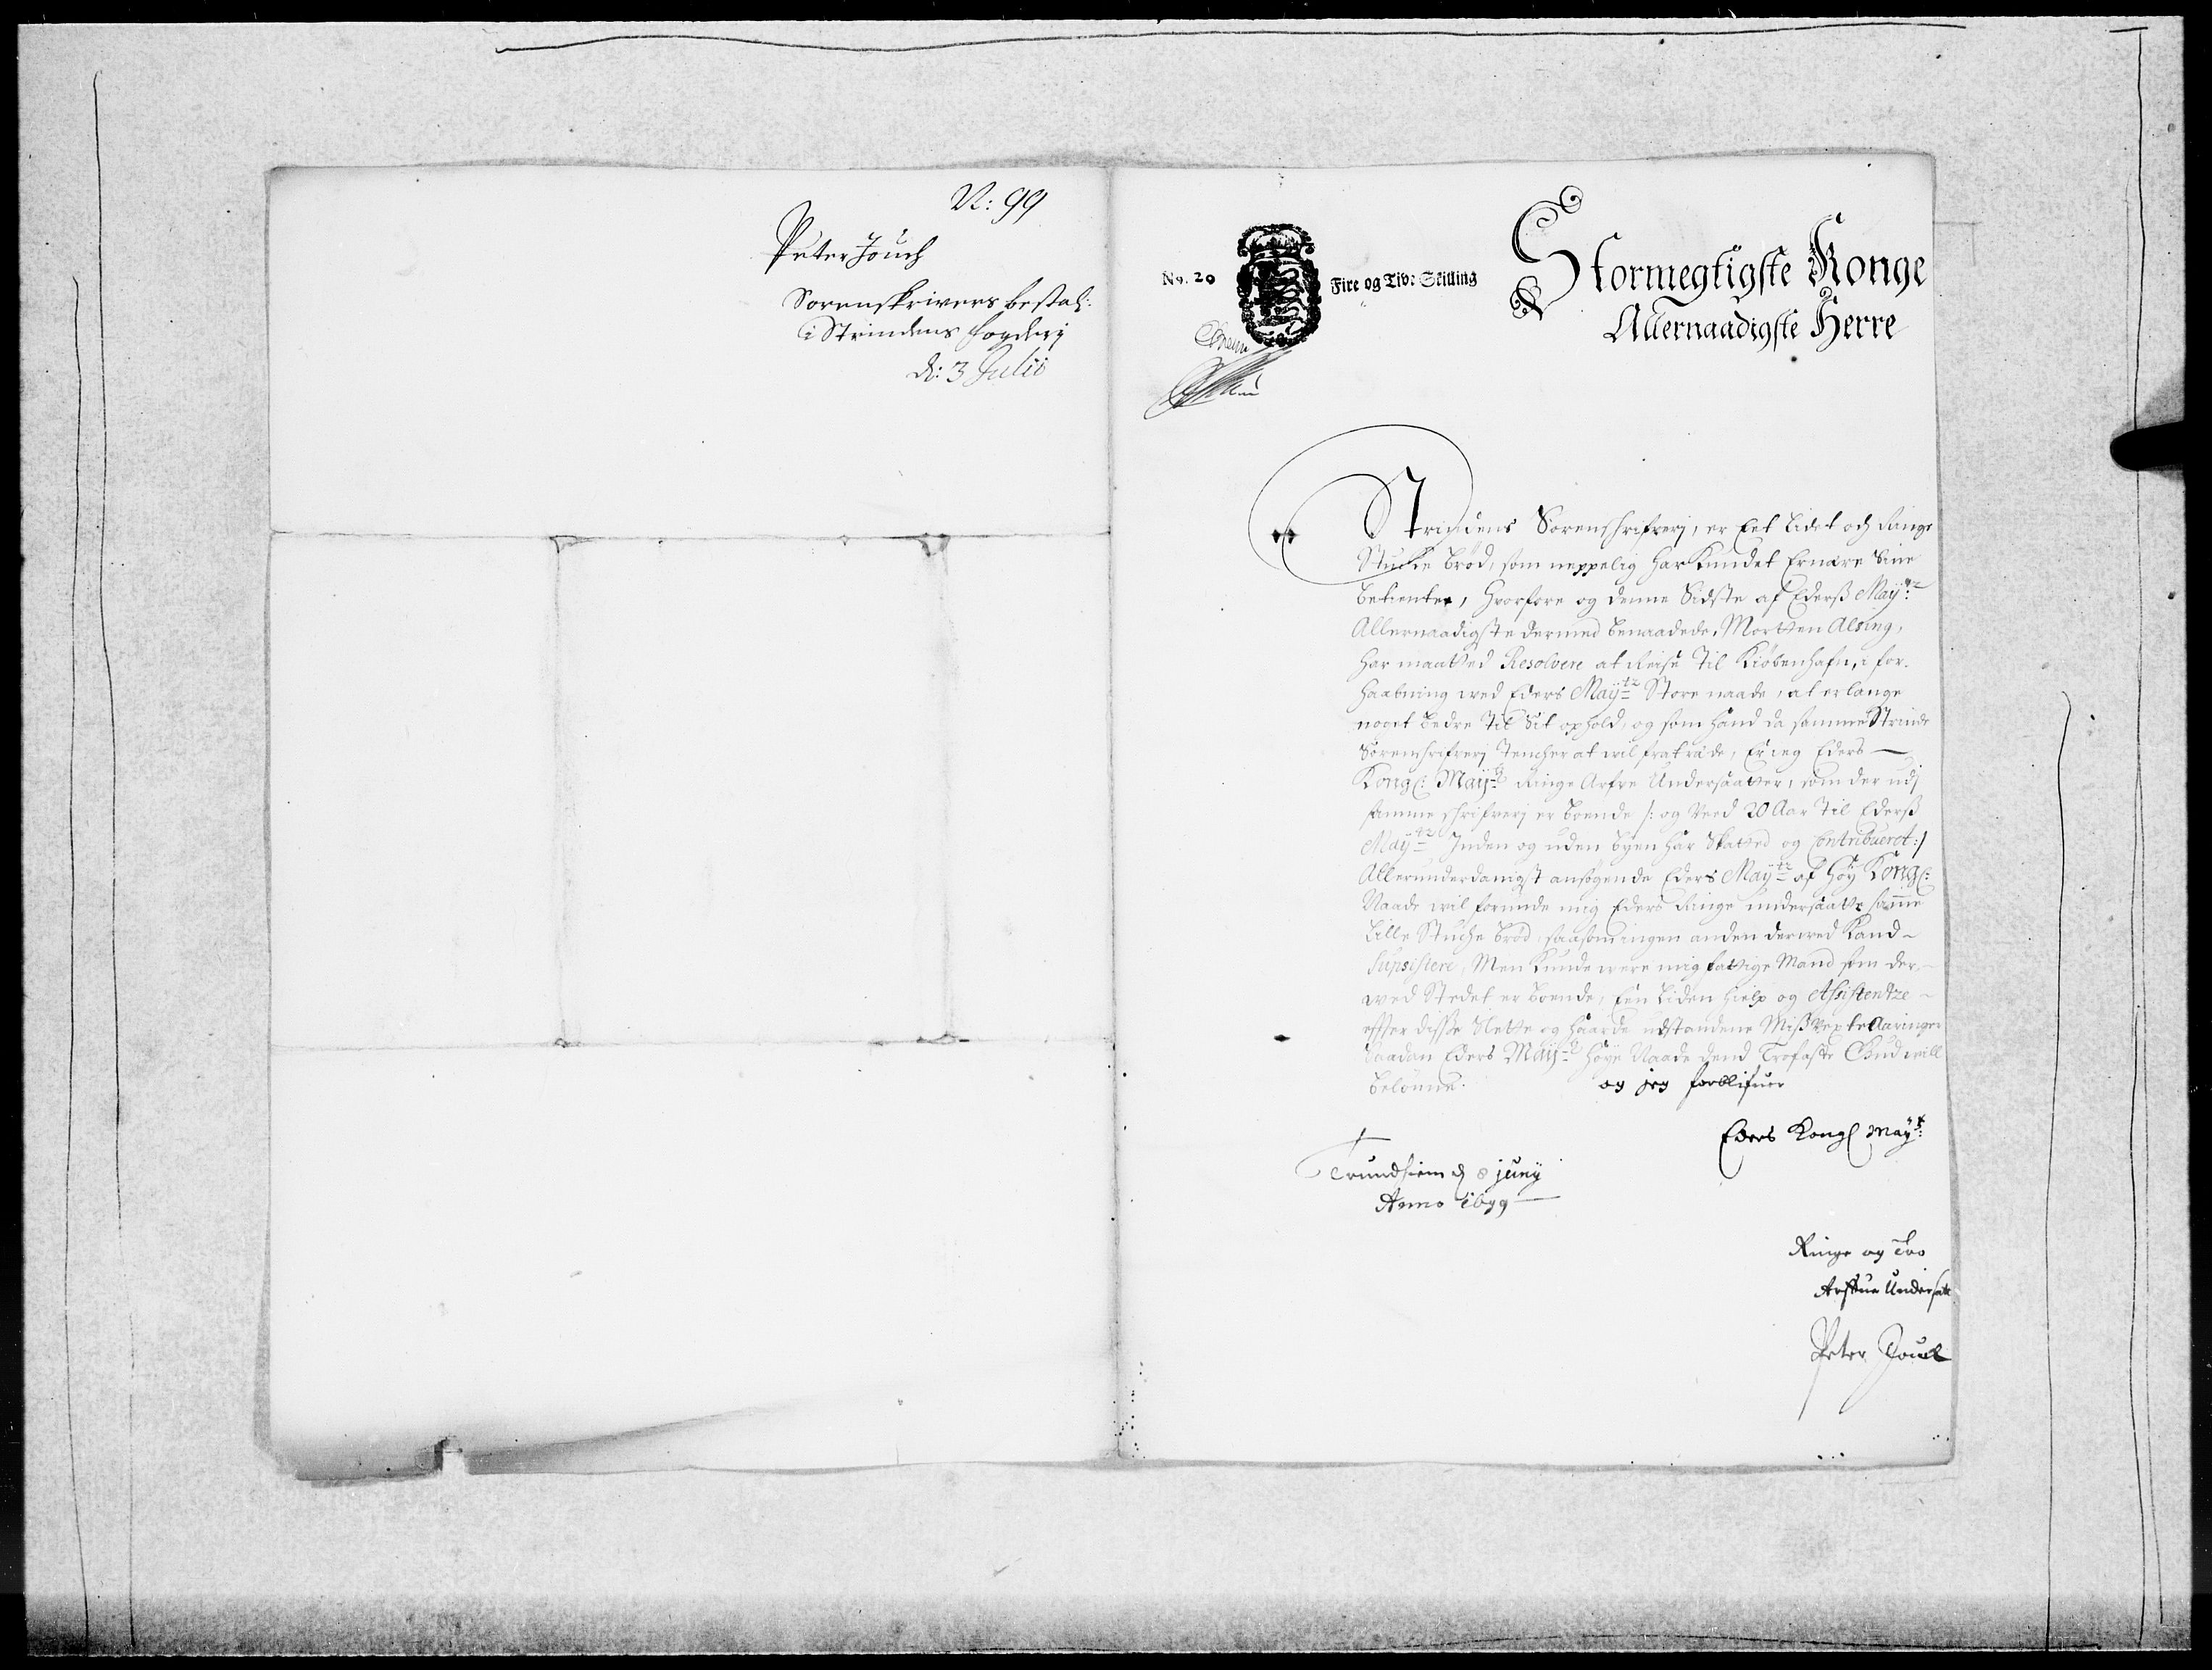 N: 99
Peter Jouch
Sorenskrivers bestal:
i Strindens fogderj
d: 3 Julii
No. 20
Fire og Tiv: Skilling
Stormegtigste Konge
Allernaadigste Herre
Strindens Sorenschrifverj, er Eet lidet och Ringe
Stucke brød, som neppelig har kundet Ernære Sine
betienter, hvorfore og denne Sidste af Ederß Mayᵗᶻ
Allernaadigste dermed benaadede, Morten Alsing,
har maatted Resolvere at Reise til Kiøbenhafn, i for-
haabning ved Eders Mayᵗᶻ Store naade, at erlange
noget bedre til Sit ophold, og som hand da samme Strinde
Sorenschrifverj tencher at vil fratræde, Er ieg Eders
Kongl: Mayᵗᶻ Ringe Arfve Undersaatter, som der udj
samme schrifverj er boende /: og Ved 20 Aar til Ederß
Mayᵗᶻ Inden og uden byen har Skatted og Contribueret :/
Allerunderdanigst ansøgende Eders Mayᵗᶻ af høy Kongl:
Naade vil forunde mig Eders Ringe undersaatte samme
lille Stuche brød, saasom ingen anden derved kand
Supsistere, Men kunde være mig fattige Mand som der
ved Stedet er boende, Een liden hielp og Assistentze
effter disse Slette og haarde udstandene Mißvexte Aaringer
Saadan Eders Mayᵗᶻ høye Naade dend Trofaste Gud will
belønne. og jeg forblifuer
Eders Kongl Mayᵗ:
Trundhiem d 8 juny
Anno 1699
Ringe og Tro
Arffue Undersaatt
Peter Jouch